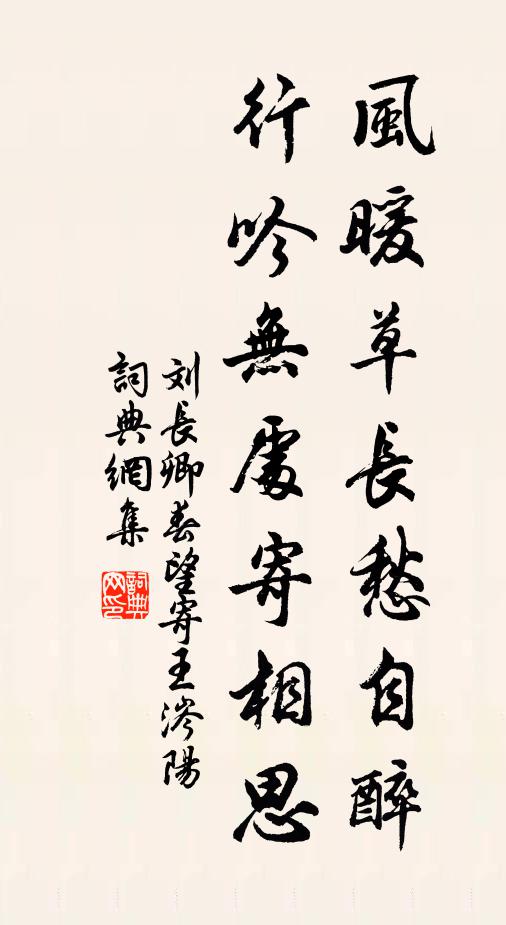 風暖草長愁自醉
行吟無處寄相思
刘長卿春望寄王涔陽
詞典網集
詞典网印